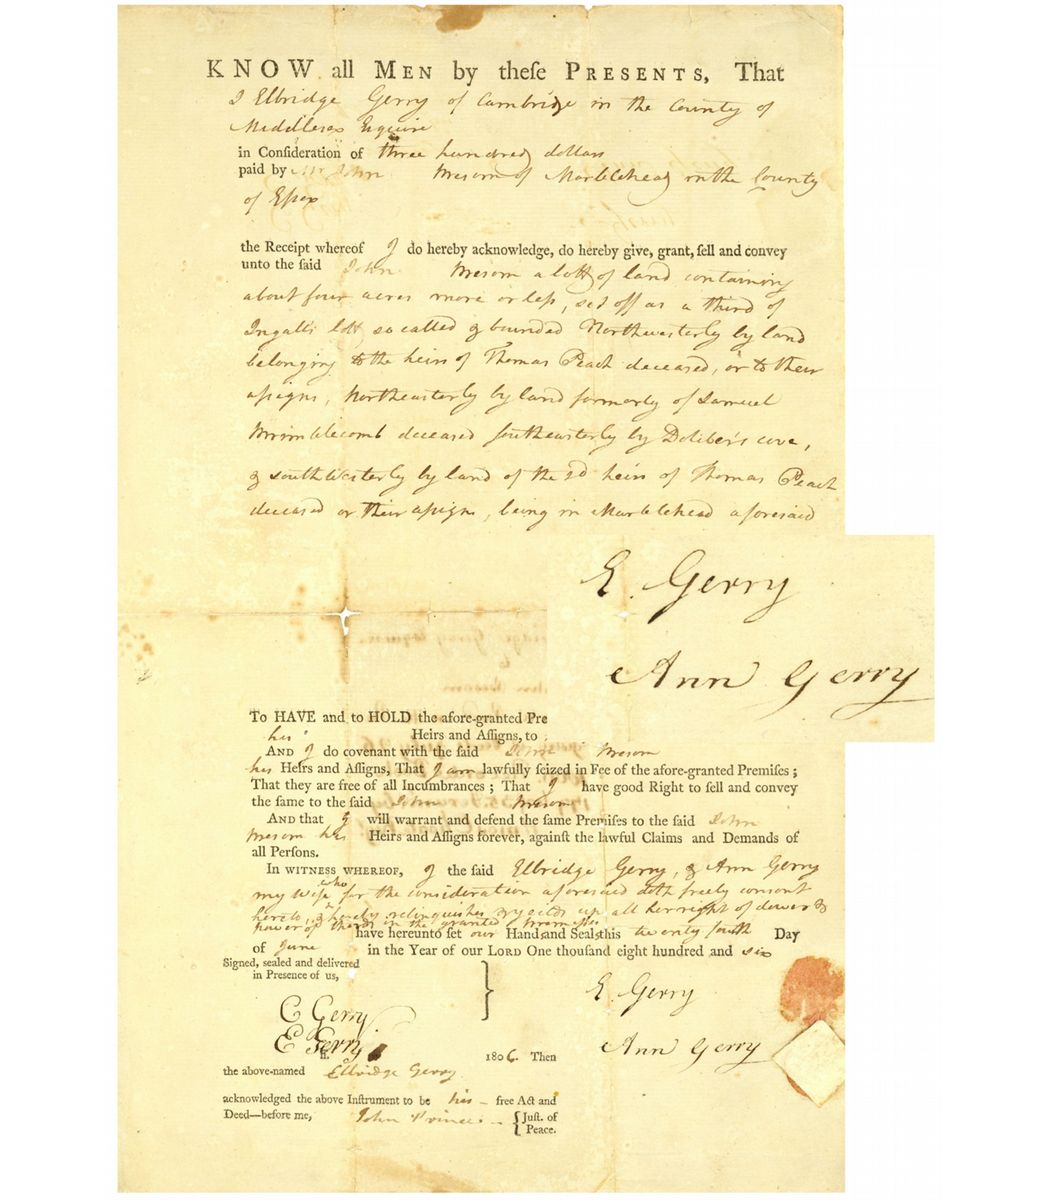 KNOW all MEN by theſe PRESENTS, That
I Elbridge Gerry of Cambridge in the County of
Middlesex Esquire
in Conſideration of three hundred dollars
paid by Mr John Mesom of Marblehead in the County
of Eſsex
the Receipt whereof I do hereby acknowledge, do hereby give, grant, ſell and convey
unto the ſaid John Mesom a lott of land containing
about four acres more or leſs, set off as a third of
Ingalls lott so called & bounded Northwesterly by land
belonging to the heirs of Thomas Peach deceased, or to their
aſsigns, Northeasterly by land formerly of Samuel
deceased Southeasterly by Doliber's cove,
& southwesterly by land of the sd heirs of Thomas Peach
deceased or their aſsigns, being in Marblehead aforesaid
E. Gerry
Ann Gerry
To HAVE and to HOLD the afore-granted Pre
his Heirs and Aſſigns, to
AND I do covenant with the ſaid John Mesom
his Heirs and Aſſigns, That I am lawfully ſeized in Fee of the afore-granted Premiſes;
That they are free of all Incumbrances; That I have good Right to ſell and convey
the ſame to the ſaid John Mesom
AND that I will warrant and defend the ſame Premiſes to the ſaid John
Mesom his Heirs and Aſſigns forever, againſt the lawful Claims and Demands of
all Perſons.
In WITNESS WHEREOF, I the ſaid Elbridge Gerry, & Ann Gerry
my wife who for the consideration aforesaid doth freely consent
hereto, & hereby relinquishes & yields up all her right of dower &
power of thirds in the granted premises
have hereunto ſet our Hands and Seals this twenty fourth Day
of June in the Year of our LORD One thouſand eight hundred and six
Signed, sealed and delivered
in Preſence of us,
E. Gerry
C Gerry
E Gerry
Ann Gerry
ſſ. 1806. Then
the above-named Elbridge Gerry
acknowledged the above Inſtrument to be his free Act and
Deed—before me, John Prince Juſt. of
Peace.